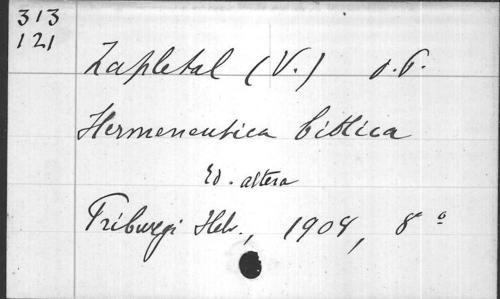 313
121
Zapletal (V.) o.P.
Hermeneutica biblica
Ed. altera
Friburgi Helv., 1908, 8°